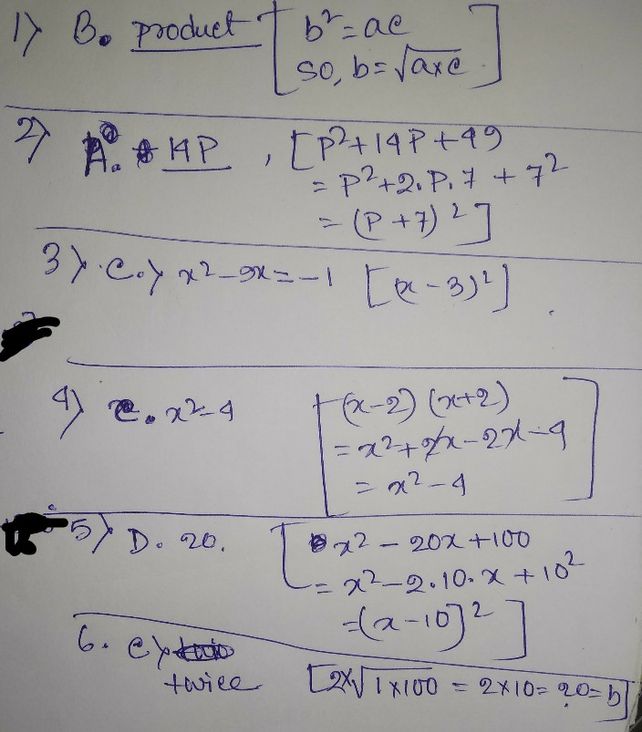 1) B. product [b² = ac
so, b = √axc.]
2) A. 14P, [P² + 14P + 49
= P² + 2.P.7 + 7²
= (P + 7)²]
3) C.) x² - 9x = -1 [(x - 3)²]
4) C. x² - 4 [(x-2) (x+2)
= x² + 2x - 2x - 4
= x² - 4]
5) D. 20. [x² - 20x + 100
= x² - 2.10.x + 10²
= (x - 10)²]
6. C)
twice [2x√1x100 = 2x10 = 20 = b]